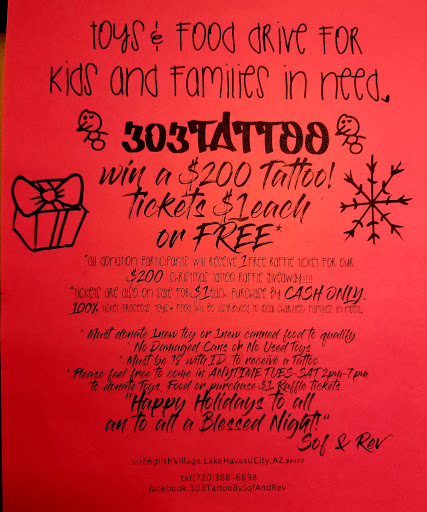 Toys & Food Drive For
Kids and Families in need.
303TATTOO
win a $200 Tattoo!
tickets $1 each
or FREE*
*all donation participants will receive 1 free raffle ticket for our
$200 christmas tattoo raffle giveaway!!!!
*tickets are also on sale for $1 each purchase by CASH ONLY.
100% ticket proceeds toys & food will be distributed to local charities/families in need.
* Must donate 1 new toy or 1 new canned food to qualify
* No Damaged Cans or No Used Toys
* Must be 18 with I.D. to receive a Tattoo
* Please feel free to come in ANYTIME TUES-SAT 2pm-7pm
to donate Toys, Food or purchase $1 Raffle Tickets.
"Happy Holidays to all
an to all a Blessed Night!"
Sof & Rev
English Village, Lake Havasu City, AZ, 86403
txt(720)366-6698
facebook.303TattooBySofAndRev